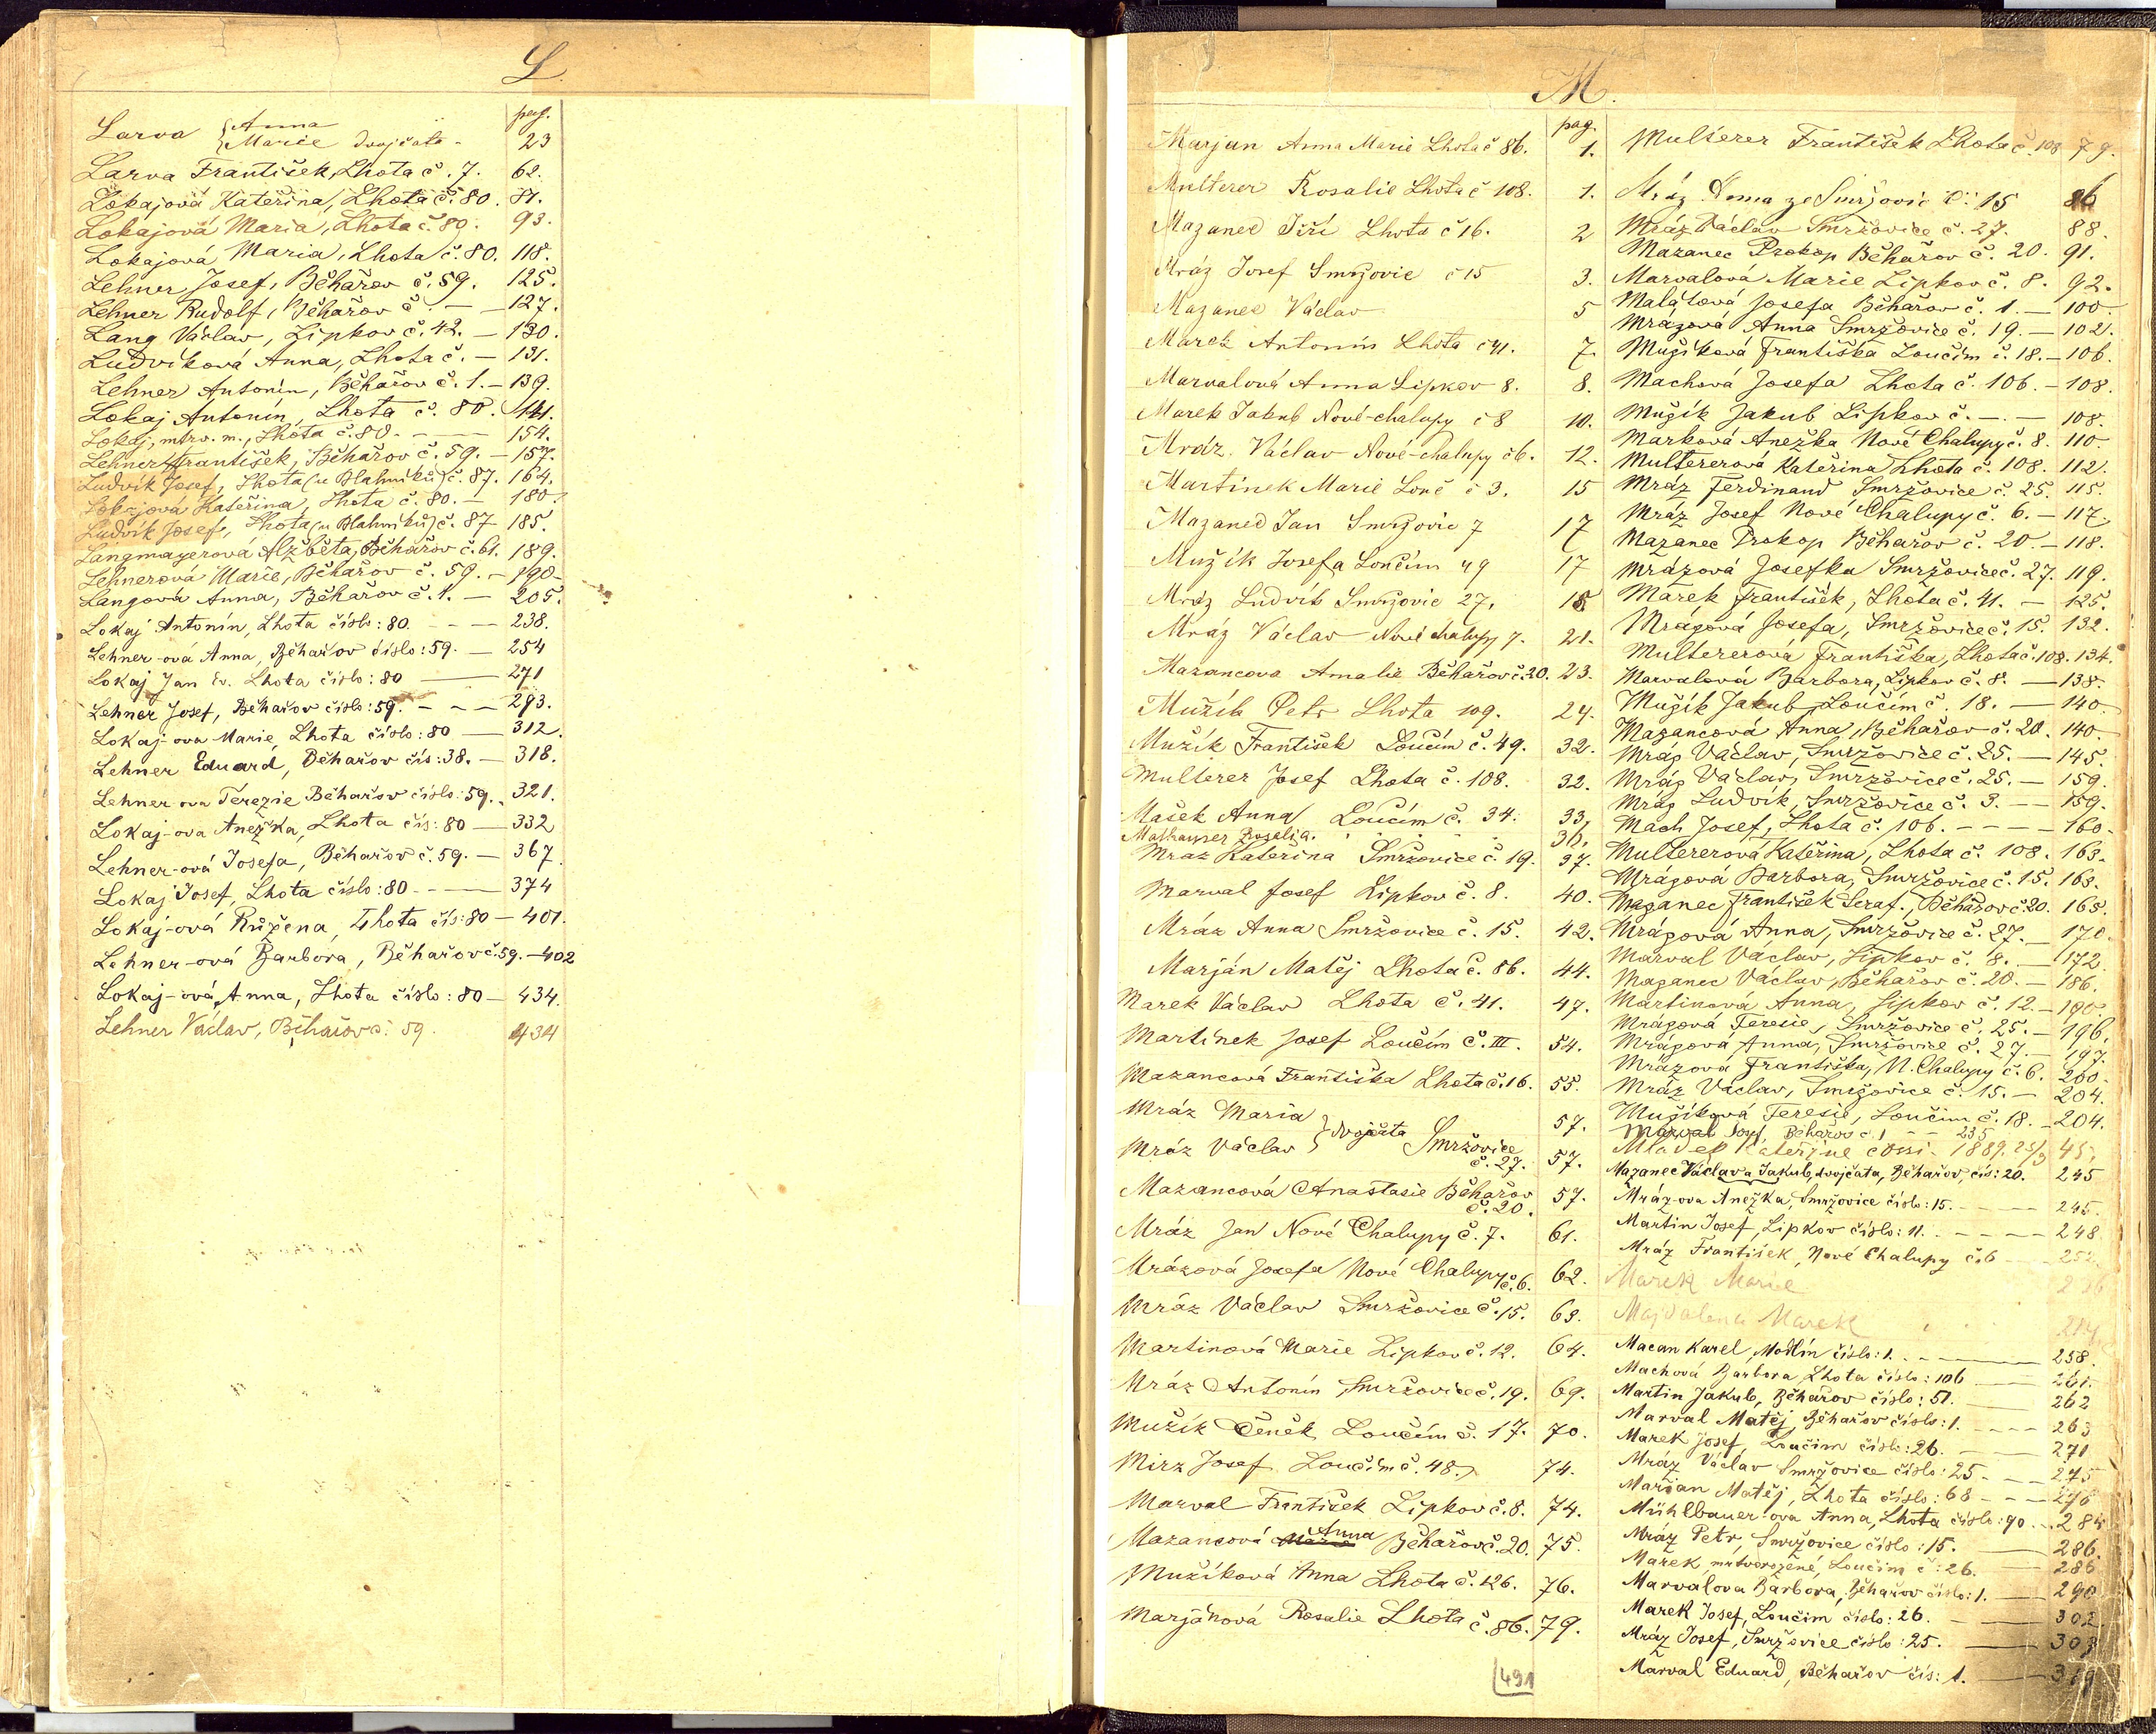 L.
pag.
Larva { Anna
Marie dvojčata - 23
Larva František, Lhota č. 7. 62.
Lokajová Kateřina, Lhota č. 80. 81.
Lokajová Maria, Lhota č. 80. 93.
Lokajová Maria, Lhota č. 80. 118.
Lehner Josef, Běhařov č. 59. 125.
Lehner Rudolf, Běhařov č. — 127.
Lang Václav, Lipkov č. 42. — 130.
Ludvíková Anna, Lhota č. — 131.
Lehner Antonín, Běhařov č. 1. — 139.
Lokaj Antonín, Lhota č. 80. 141.
Lokaj, mrtv. m., Lhota č. 80. - — 154.
Lehner František, Běhařov č. 59. — 157.
Ludvík Josef, Lhota (u Blahníků) č. 87. 164.
Lokajová Kateřina, Lhota č. 80. — 180.
Ludvík Josef, Lhota (u Blahníků) č. 87 185.
Langmayerová Alžběta, Běhařov č. 61. 189.
Lehnerová Marie, Běhařov č. 59. — 190-
Langová Anna, Běhařov č. 1. — 205.
Lokaj Antonín, Lhota číslo: 80. - - — 238.
Lehner-ová Anna, Běhařov číslo: 59. — 254
Lokaj Jan Ev. Lhota číslo: 80 — 271
Lehner Josef, Běhařov číslo: 59. - - — 293.
Lokaj-ova Marie, Lhota číslo: 80 — 312.
Lehner Eduard, Běhařov čís: 38. — 318.
Lehner-ova Terezie Běhařov číslo: 59. - 321.
Lokaj-ova Anežka, Lhota čís: 80 — 332
Lehner-ová Josefa, Běhařov č. 59. — 367.
Lokaj Josef, Lhota číslo: 80 - — 374
Lokaj-ová Růžena, Lhota čís: 80 — 401.
Lehner-ová Barbora, Běhařov č. 59. — 402
Lokaj-ová Anna, Lhota číslo: 80 — 434.
Lehner Václav, Běhařov č. 59. 434
M.
pag.
Marjan Anna Marie Lhota č 86. 1.
Multerer Rosalie Lhota č 108. 1.
Mazanec Jiří Lhota č 16. 2
Mráz Josef Smržovic č 15 3.
Mazanec Václav 5
Marek Antonín Lhota č 41. 7.
Marvalová Anna Lipkov 8. 8.
Marek Jakub Nové-chalupy č 8 10.
Mráz. Václav Nové-chalupy č 6. 12.
Martinek Marie Louč č 3. 15
Mazanec Jan Smržovic 7 17
Mužík Josefa Loučim 49 17
Mráz Ludvík Smržovic 27. 18.
Mráz Václav Nové chalupy 7. 21.
Mazancova Amalie Běhařov č. 20. 23.
Mužík Petr Lhota 109. 24.
Mužík František Loučím č. 49. 32.
Multerer Josef Lhota č. 108. 32.
Mašek Anna Loučím č. 34. 33.
Mathauser Rosalia. 36.
Mraz Kateřina Smržovice č. 19. 37.
Marval Josef Lipkov č. 8. 40.
Mráz Anna Smržovice č. 15. 42.
Marján Matěj Lhota č. 86. 44.
Marek Václav Lhota č. 41. 47.
Martínek Josef Loučím č. III. 54.
Mazancová Františka Lhota č. 16. 55.
Mráz Maria } dvojčata 57.
Mráz Václav Smržovice č. 27. 57.
Mazancová Anastasie Běhařov č. 20. 57.
Mráz Jan Nové Chalupy č. 7. 61.
Mrázová Josefa Nové Chalupy č. 6. 62.
Mráz Václav Smržovice č. 15. 63.
Martinová Marie Lipkov č. 12. 64.
Mráz Antonín Smržovice č. 19. 69.
Mužík Čeněk Loučím č. 17. 70.
Mirz Josef Loučím č. 48. 74.
Marval František Lipkov č. 8. 74.
Mazancová Anna Běhařov č. 20. 75.
Mužíková Anna Lhota č. 126. 76.
Marjánová Rosalie Lhota č. 86. 79.
491
Multerer František Lhota č. 108 79.
Mráz Anna ze Smržovic č. 15 86
Mráz Václav Smržovice č. 27. 88.
Mazanec Prokop Běhařov č. 20. 91.
Marvalová Marie Lipkov č. 8. 92.
Malátová Josefa Běhařov č. 1. — 100.
Mrázová Anna Smržovice č. 19. — 102.
Mužíková Františka Loučím č. 18. — 106.
Machová Josefa Lhota č. 106. — 108.
Mužík Jakub Lipkov č. — . — 108.
Marková Anežka Nové Chalupy č. 8. 110
Multererová Kateřina Lhota č. 108. 112.
Mráz Ferdinand Smržovice č. 25. 115.
Mráz Josef Nové Chalupy č. 6. — 117.
Mazanec Prokop Běhařov č. 20. — 118.
Mrázová Josefka Smržovice č. 27. 119.
Marek František, Lhota č. 41. — 125.
Mrázová Josefa, Smržovice č. 15. 132.
Multererová Františka, Lhota č. 108. 134.
Marvalová Barbora, Lipkov č. 8. — 138.
Mužík Jakub, Loučím č. 18. — 140
Mazancová Anna, Běhařov č. 20. 140.
Mráz Václav, Smržovice č. 25. — 145.
Mráz Václav, Smržovice č. 25. — 159.
Mráz Ludvík, Smržovice č. 3. — 159.
Mach Josef, Lhota č. 106. - - - 160.
Multererová Kateřina, Lhota č. 108. 163.
Mrázová Barbora, Smržovice č. 15. 163.
Mazanec František Seraf., Běhařov č. 20. 165.
Mrázová Anna, Smržovice č. 27. — 170.
Marval Václav, Lipkov č. 8. — 172
Mazanec Václav, Běhařov č. 20. — 186.
Martinová Anna, Lipkov č. 12. — 190.
Mrázová Teresie, Smržovice č. 25. — 196.
Mrázová Anna, Smržovice č. 27. — 197.
Mrázová Františka, N. Chalupy č. 6. 200.
Mráz Václav, Smržovice č. 15. — 204.
Mužíková Teresie, Loučim č. 18. — 204.
Marval Josef, Běhařov č. 1 - - 235
Kateřine 1889. 25/3 45.
Mazanec Václav a Jakub, dvojčata, Běhařov, čís: 20. 245
Mráz-ova Anežka, Smržovice číslo: 15. - - - 245.
Martin Josef, Lipkov číslo: 11. - - - — 248
Mráz František, Nové Chalupy č. 6 — 252.
Marek Marie 236
Majdalena Marek
Macan Karel, Modlín číslo: 1. - - — 258.
Machová Barbora Lhota číslo: 106 — 261.
Martin Jakub, Běhařov číslo: 51. — 262
Marval Matěj, Běhařov číslo: 1. - - - 263
Marek Josef, Loučim číslo: 26. — 271
Mráz Václav Smržovice číslo: 25 - - - 275
Marian Matěj, Lhota číslo: 68 - - — 276
Mühlbauer-ova Anna, Lhota číslo: 90. - . 284
Mráz Petr, Smržovice číslo: 15. — 286.
Marek, mrtvorozené, Loučim č: 26. — 286
Marvalova Barbora, Běhařov číslo: 1. — 290
Marek Josef, Loučim číslo: 26. — 302.
Mráz Josef, Smržovice číslo: 25. — 303
Marval Eduard, Běhařov čís: 1. — 319